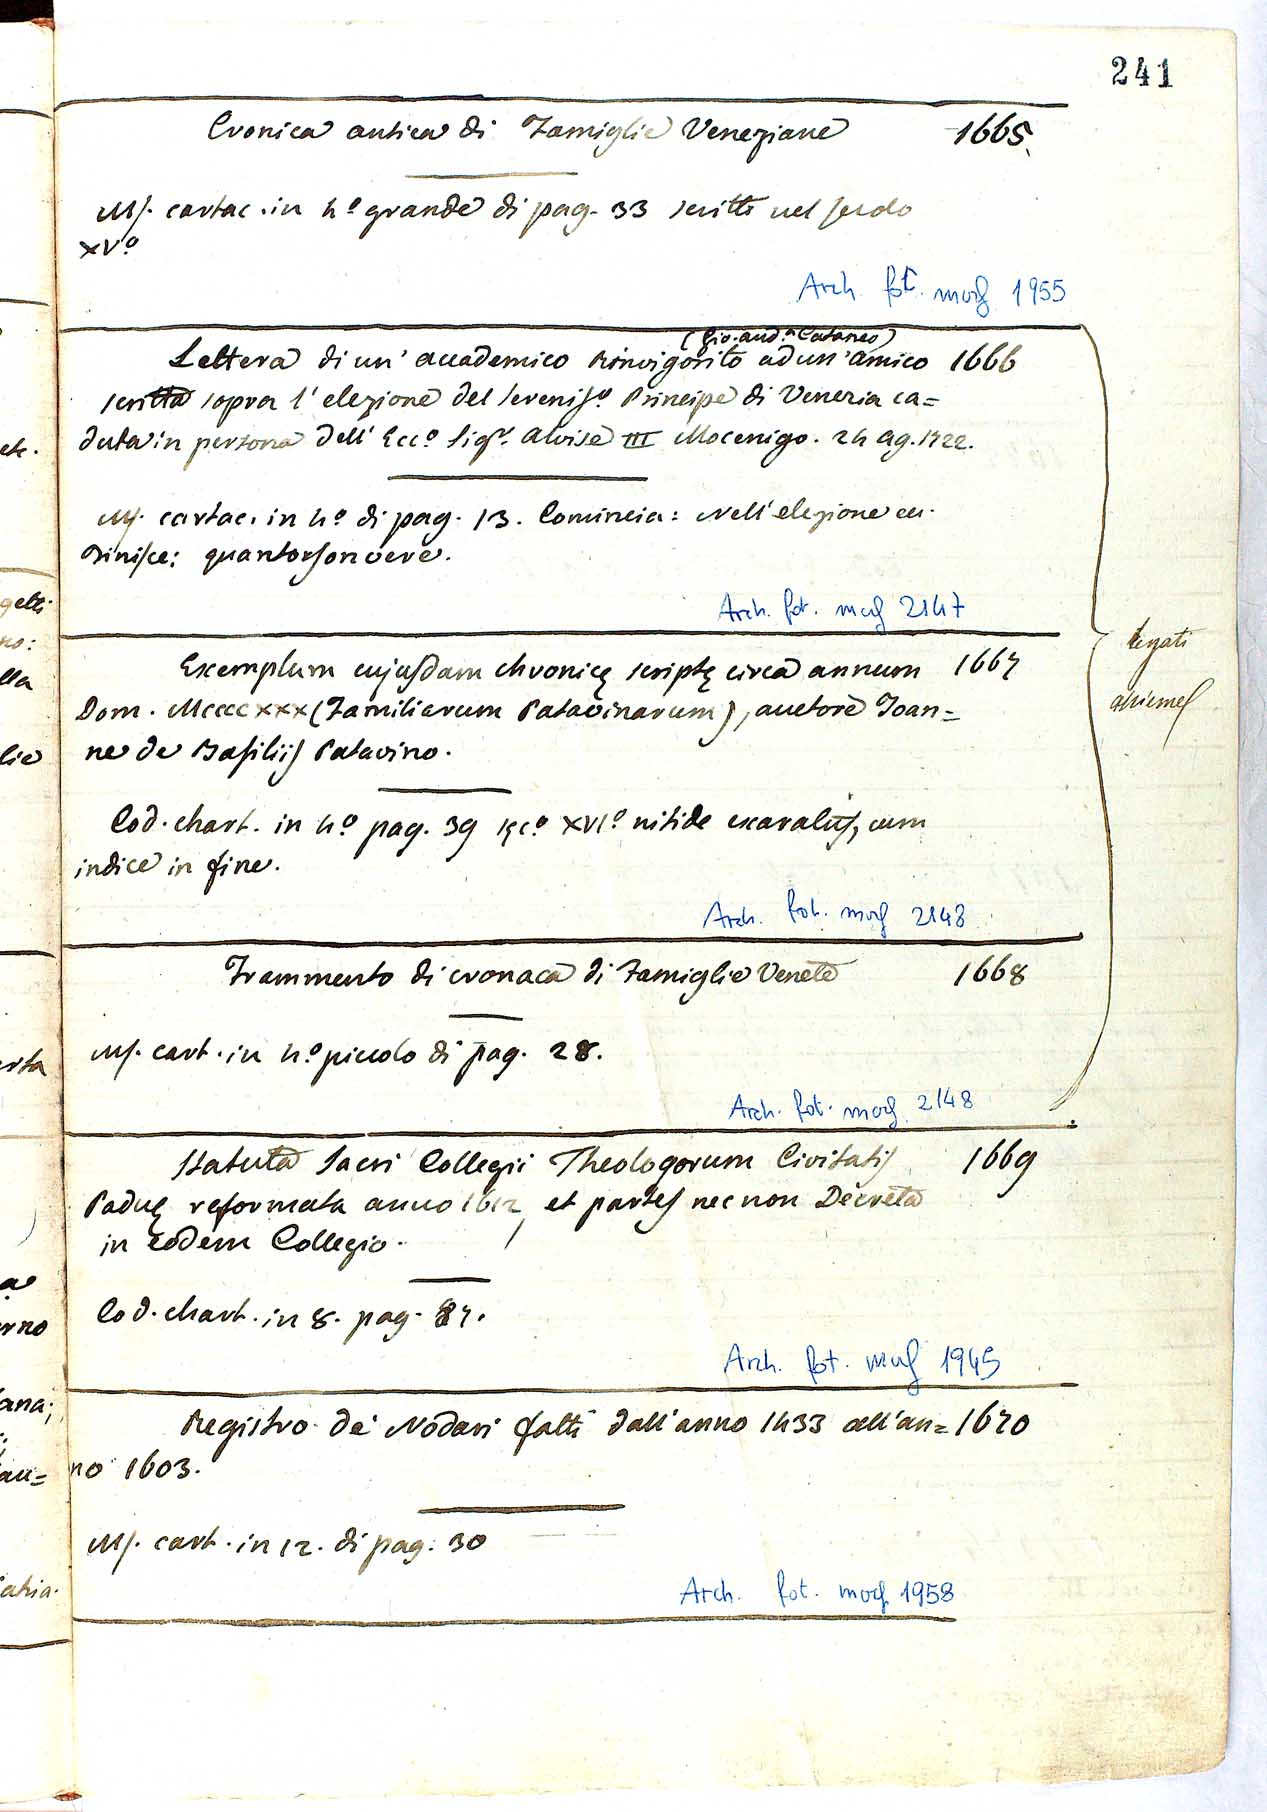 241
Cronica antica di Famiglie Veneziane 1665.
Ms. cartac. in 4º grande di pag. 33 scritti nel secolo
XVº
Arch. fot. mod 1955
(Gio. And.ª Cataneo)
Lettera di un' accademico Rinvigorito ad un' amico 1666
scritta sopra l' elezione del Serenisº Principe di Venezia ca=
duta in persona dell' Eccº Sigr. Alvise III Mocenigo. 24 Ag. 1722.
Ms. cartac. in 4º di pag. 13. Comincia: Nell' elezione ec.
Finisce: quantorson vere.
Arch. fot. mod 2147
Exemplum cujusdam chronicę scriptę circa annum 1667
Dom. MCCCCXXX (Familiarum Patavinarum), auctore Joan=
ne de Basiliis Patavino.
Cod. chart. in 4º pag. 39 sęcº XVIº nitide exaratus, cum
indice in fine.
Arch. fot. mod 2148
Frammento di cronaca di Famiglie Venete 1668
Ms. cart. in 4º piccolo di pag. 28.
Arch. fot. mod 2148
legati
assieme
Statuta Sacri Collegii Theologorum Civitatis 1669
Paduę reformata anno 1612, et partes nec non Decreta
in eodem Collegio.
Cod. chart. in 8. pag. 87.
Arch. fot. mod 1945
Registro de' Nodari fatti dall' anno 1433 all' an= 1670
no 1603.
Ms. cart. in 12. di pag. 30
Arch. fot. mod 1958